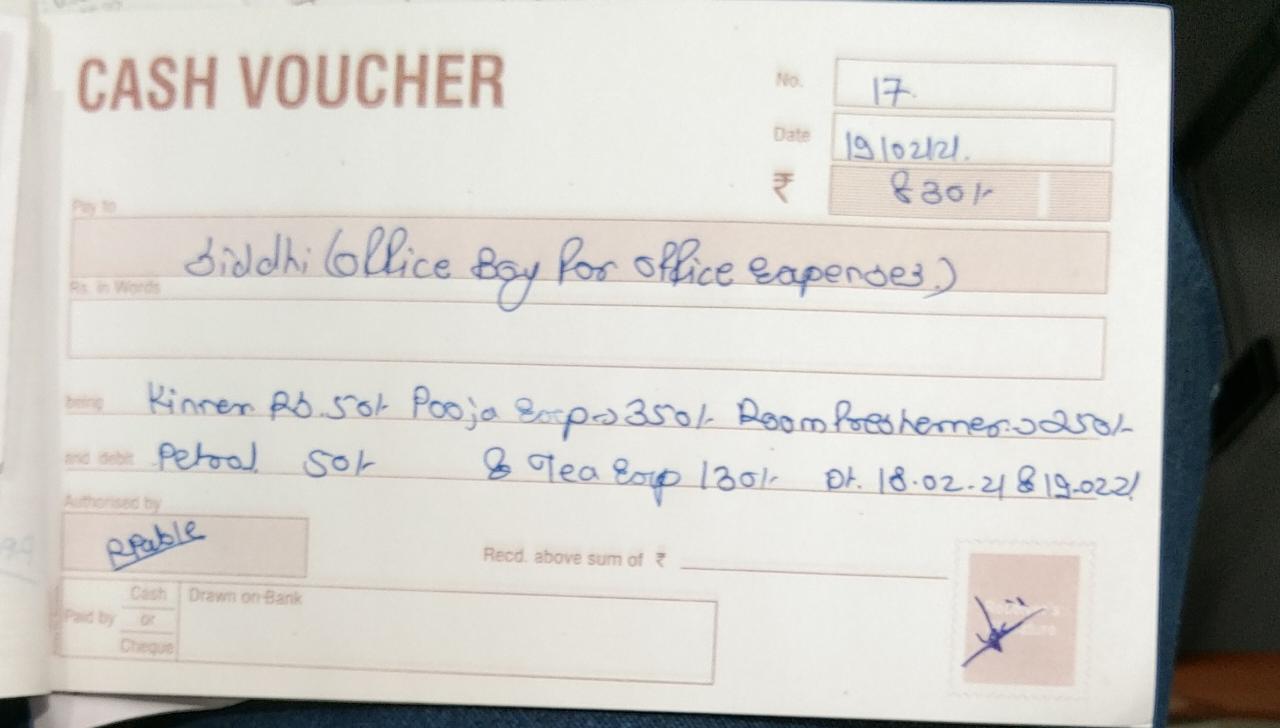 CASH VOUCHER
No. 17.
Date 19/02/21.
₹ 830/-
Pay to
Siddhi (office Boy for office Expenses.)
Rs. in Words
being Kinner Rs. 50/- Pooja Exp → 350/- Room freshemer → 250/-
and debit Petrol 50/- & Tea Exp 130/- Dt. 18.02.21 & 19.0221
Authorised by
Recd. above sum of ₹
Cash Drawn on Bank
Paid by or
Cheque